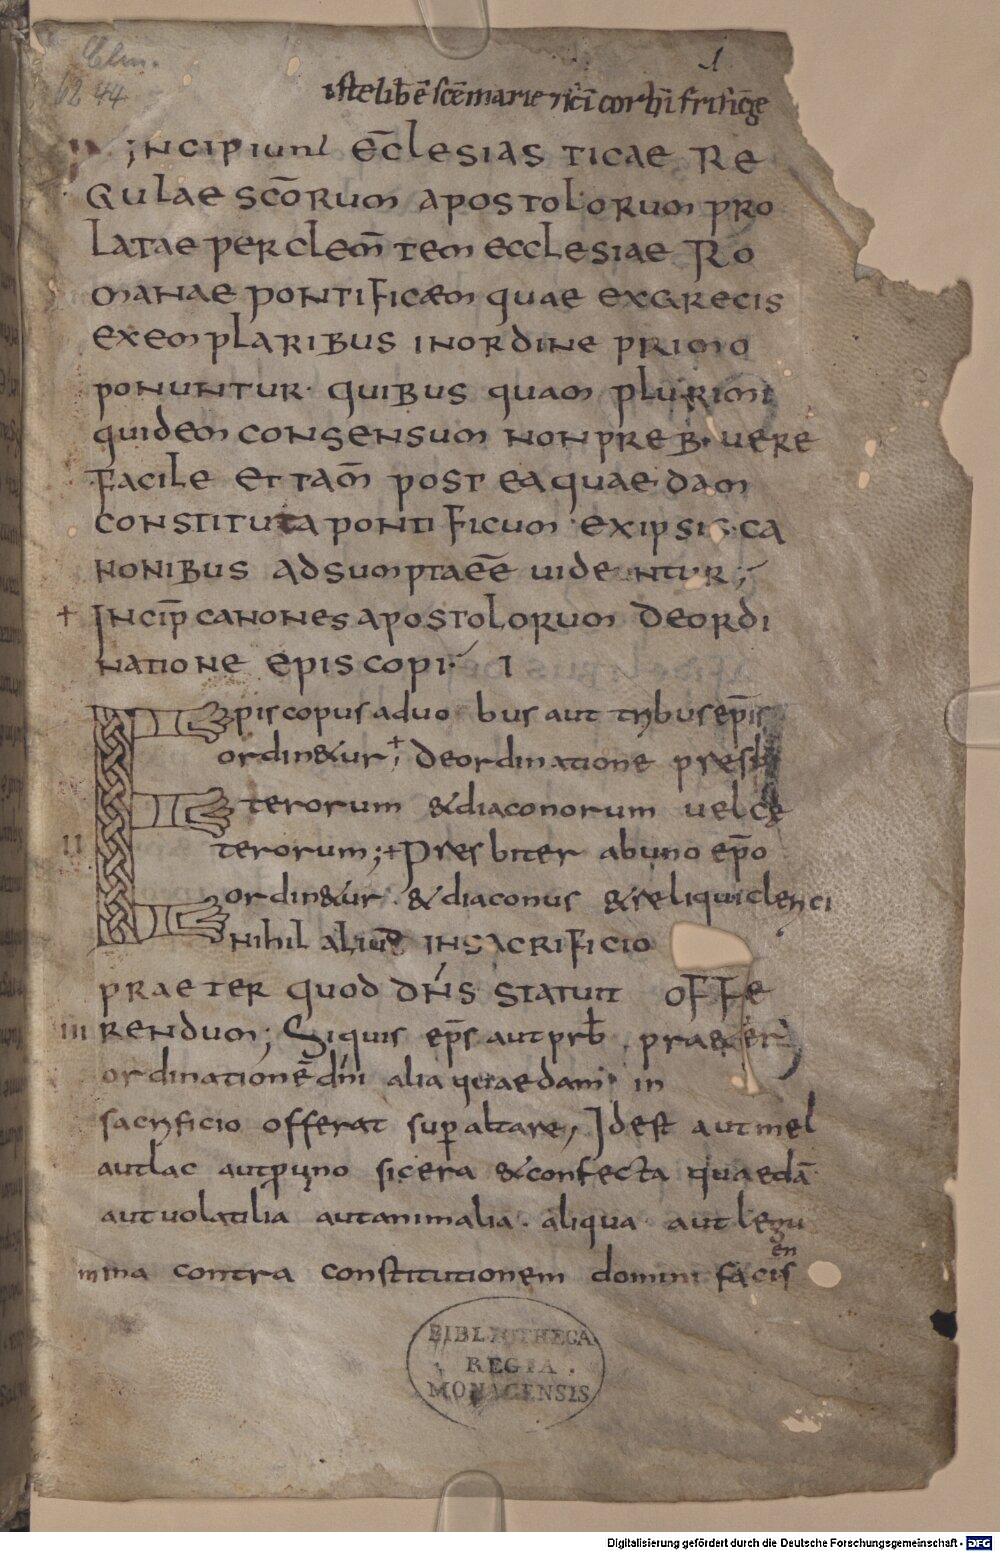 Clm.
6244
1
iste lib̄ ē scē marie ⁊ sc̄i corb̄i frisīge
INCIPIUNT ECCLESIASTICAE RE
GULAE SCŌRUM APOSTOLORUM PRO
LATAE PER CLEM̄TEM ECCLESIAE RO
MANAE PONTIFICAEM QUAE EXGRECIS
EXEMPLARIBUS INORDINE PRIMO
PONUNTUR· QUIBUS QUAM PLURIMI
QUIDEM CONSENSUM NON PREB·UERE
FACILE ET TAM̄ POST EA QUAEDAM
CONSTITUTA PONTIFICUM EXIPSIS CA
NONIBUS ADSUMPTAEĒ UIDENTUR;
+ INCIP̄ CANONES APOSTOLORUM DEORDI
NATIONE EPISCOPI· I
Episcopus aduobus aut tribus ep̄is
ordin&ur; + Deordinatione presbi
terorum &diaconorum uel ce
II terorum; + Presbiter abuno ep̄o
ordin&ur· &diaconus &reliqui clerici
nihil aliud INSACRIFICIO
PRAETER QUOD DN̄S STATUIT OFFE
III RENDUM; Siquis ep̄s aut prb̄ praeter
ordinationē dn̄i alia quaedam in
sacrificio offerat sup altare, Idest aut mel
aut lac aut pro uino sicera &confecta quaedā
aut uolatilia aut animalia· aliqua aut legu
en
mina contra constitutionem domini facis
BIBLIOTHECA
REGIA
MONACENSIS
Digitalisierung gefördert durch die Deutsche Forschungsgemeinschaft - DFG